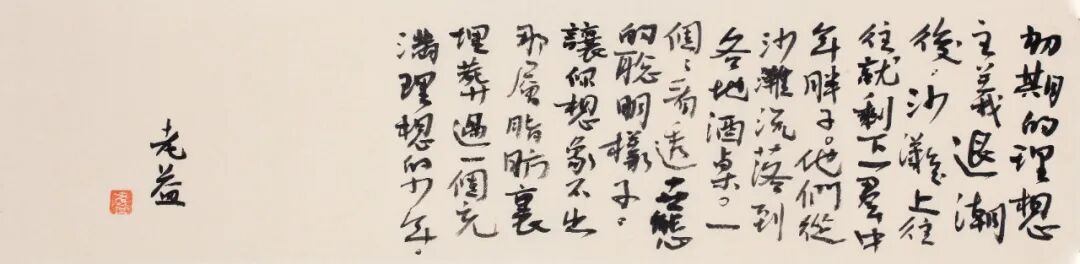 初期的理想
主義退潮
後，沙灘上往
往就剩下一羣中
年胖子。他們從
沙灘流落到
各地酒桌。一
個〻看透世態
的聪明樣子。
讓你想象不出
那層脂肪裏
埋葬過一個充
滿理想的少年。
老益